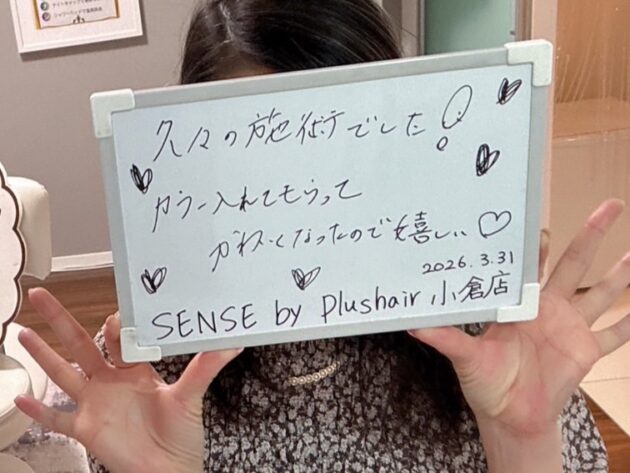 久々の施術でした!
カラー入れてもらって
かわいくなったので嬉しい♡
2026.3.31
SENSE by Plushair 小倉店